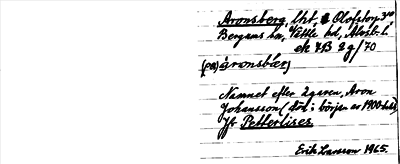 Aronsberg, lht, Olofstorp 3:10
Bergums sn, Vättle hd, Älvsb. l.
ek 7B 2g/70
(på) àronsbær)
Namnet efter ägaren, Aron
Johansson (död i början av 1900-talet)
Jfr Petterlises
Erik Larsson 1965.